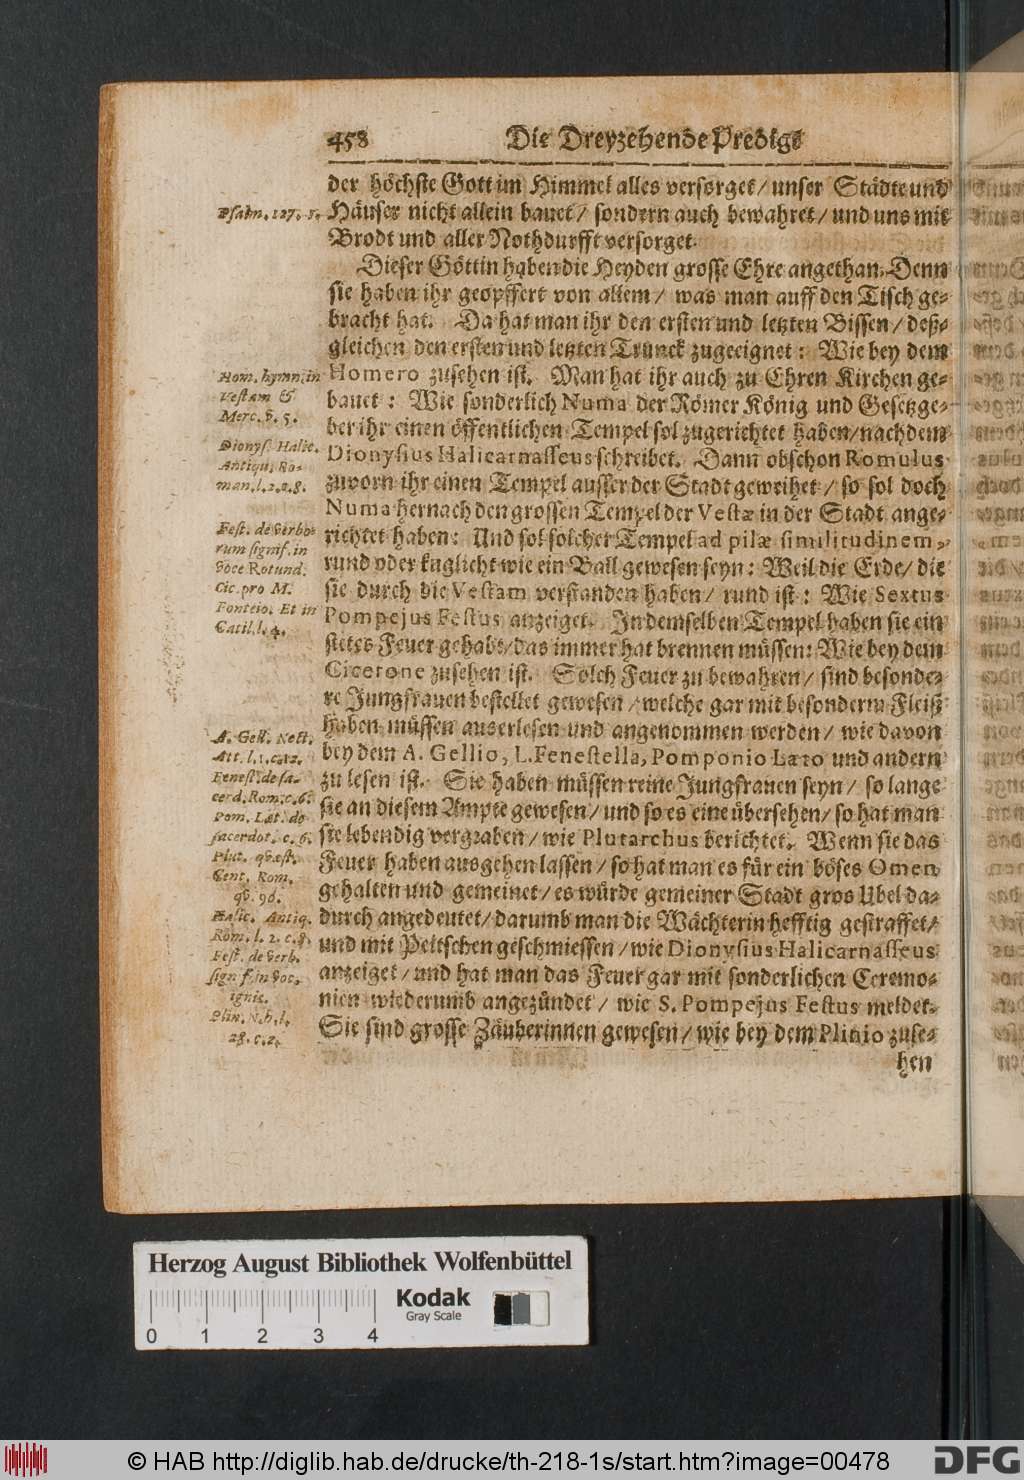 458 Die Dreyzehende Predigt
der höchste Gott im Himmel alles versorget / unser Städte und
Psalm. 127. 1. Häuser nicht allein bauet / sondern auch bewahret / und uns mit
Brodt und aller Nothdurfft versorget.
Dieser Göttin haben die Heyden grosse Ehre angethan. Denn
sie haben ihr geopffert von allem / was man auff den Tisch ge-
bracht hat. Da hat man ihr den ersten und letzten Bissen / deß-
gleichen den ersten und letzten Trunck zugeeignet: Wie bey dem
Homero zusehen ist. Man hat ihr auch zu Ehren Kirchen ge-
bauet: Wie sonderlich Numa der Römer König und Gesetzge-
ber ihr einen öffentlichen Tempel sol zugerichtet haben / nachdem
Dionysius Halicarnasseus schreibet. Dann obschon Romulus
zuvorn ihr einen Tempel ausser der Stadt geweihet / so sol doch
Numa hernach den grossen Tempel der Vestæ in der Stadt ange-
richtet haben: Und sol solcher Tempel ad pilæ similitudinem,
rund oder kuglicht wie ein Ball gewesen seyn: Weil die Erde / die
sie durch die Vestam verstanden haben / rund ist: Wie Sextus
Pompejus Festus anzeiget. In demselben Tempel haben sie ein
stetes Feuer gehabt / das immer hat brennen müssen: Wie bey dem
Cicerone zusehen ist. Solch Feuer zu bewahren / sind besonde-
re Jungfrauen bestellet gewesen / welche gar mit besonderm Fleiß
haben müssen auserlesen und angenommen werden / wie davon
bey dem A. Gellio, L. Fenestella, Pomponio Læto und andern
zu lesen ist. Sie haben müssen reine Jungfrauen seyn / so lange
sie an diesem Ampte gewesen / und so es eine übersehen / so hat man
sie lebendig vergraben / wie Plutarchus berichtet. Wenn sie das
Feuer haben ausgehen lassen / so hat man es für ein böses Omen
gehalten und gemeinet / es würde gemeiner Stadt gros Ubel da-
durch angedeutet / darumb man die Wächterin hefftig gestraffet /
und mit Peitschen geschmiessen / wie Dionysius Halicarnasseus
anzeiget / und hat man das Feuer gar mit sonderlichen Ceremo-
nien wiederumb angezündet / wie S. Pompejus Festus meldet.
Sie sind grosse Zäuberinnen gewesen / wie bey dem Plinio zuse-
hen
Hom. hymn. in
Vestam &
Merc. v. 5.
Dionys. Halic.
Antiqu. Ro-
man. l. 2. 2. 8.
Fest. de verbo-
rum signif. in
voce Rotund.
Cic. pro M.
Fonteio. Et in
Catil. l. 4.
A. Gell. Noct.
Att. l. 1. c. 12.
Fenest. de sa-
cerd. Rom. c. 6.
Pom. Læt. de
sacerdot. c. 6.
Plut. quæst.
Cent. Rom.
qv. 96.
Halic. Antiq.
Rom. l. 2. c. 8.
Fest. de verb.
signif. in voc.
ignis.
Plin. N. h. l.
28. c. 2.
Herzog August Bibliothek Wolfenbüttel
Kodak
Gray Scale
0 1 2 3 4
© HAB http://diglib.hab.de/drucke/th-218-1s/start.htm?image=00478
DFG